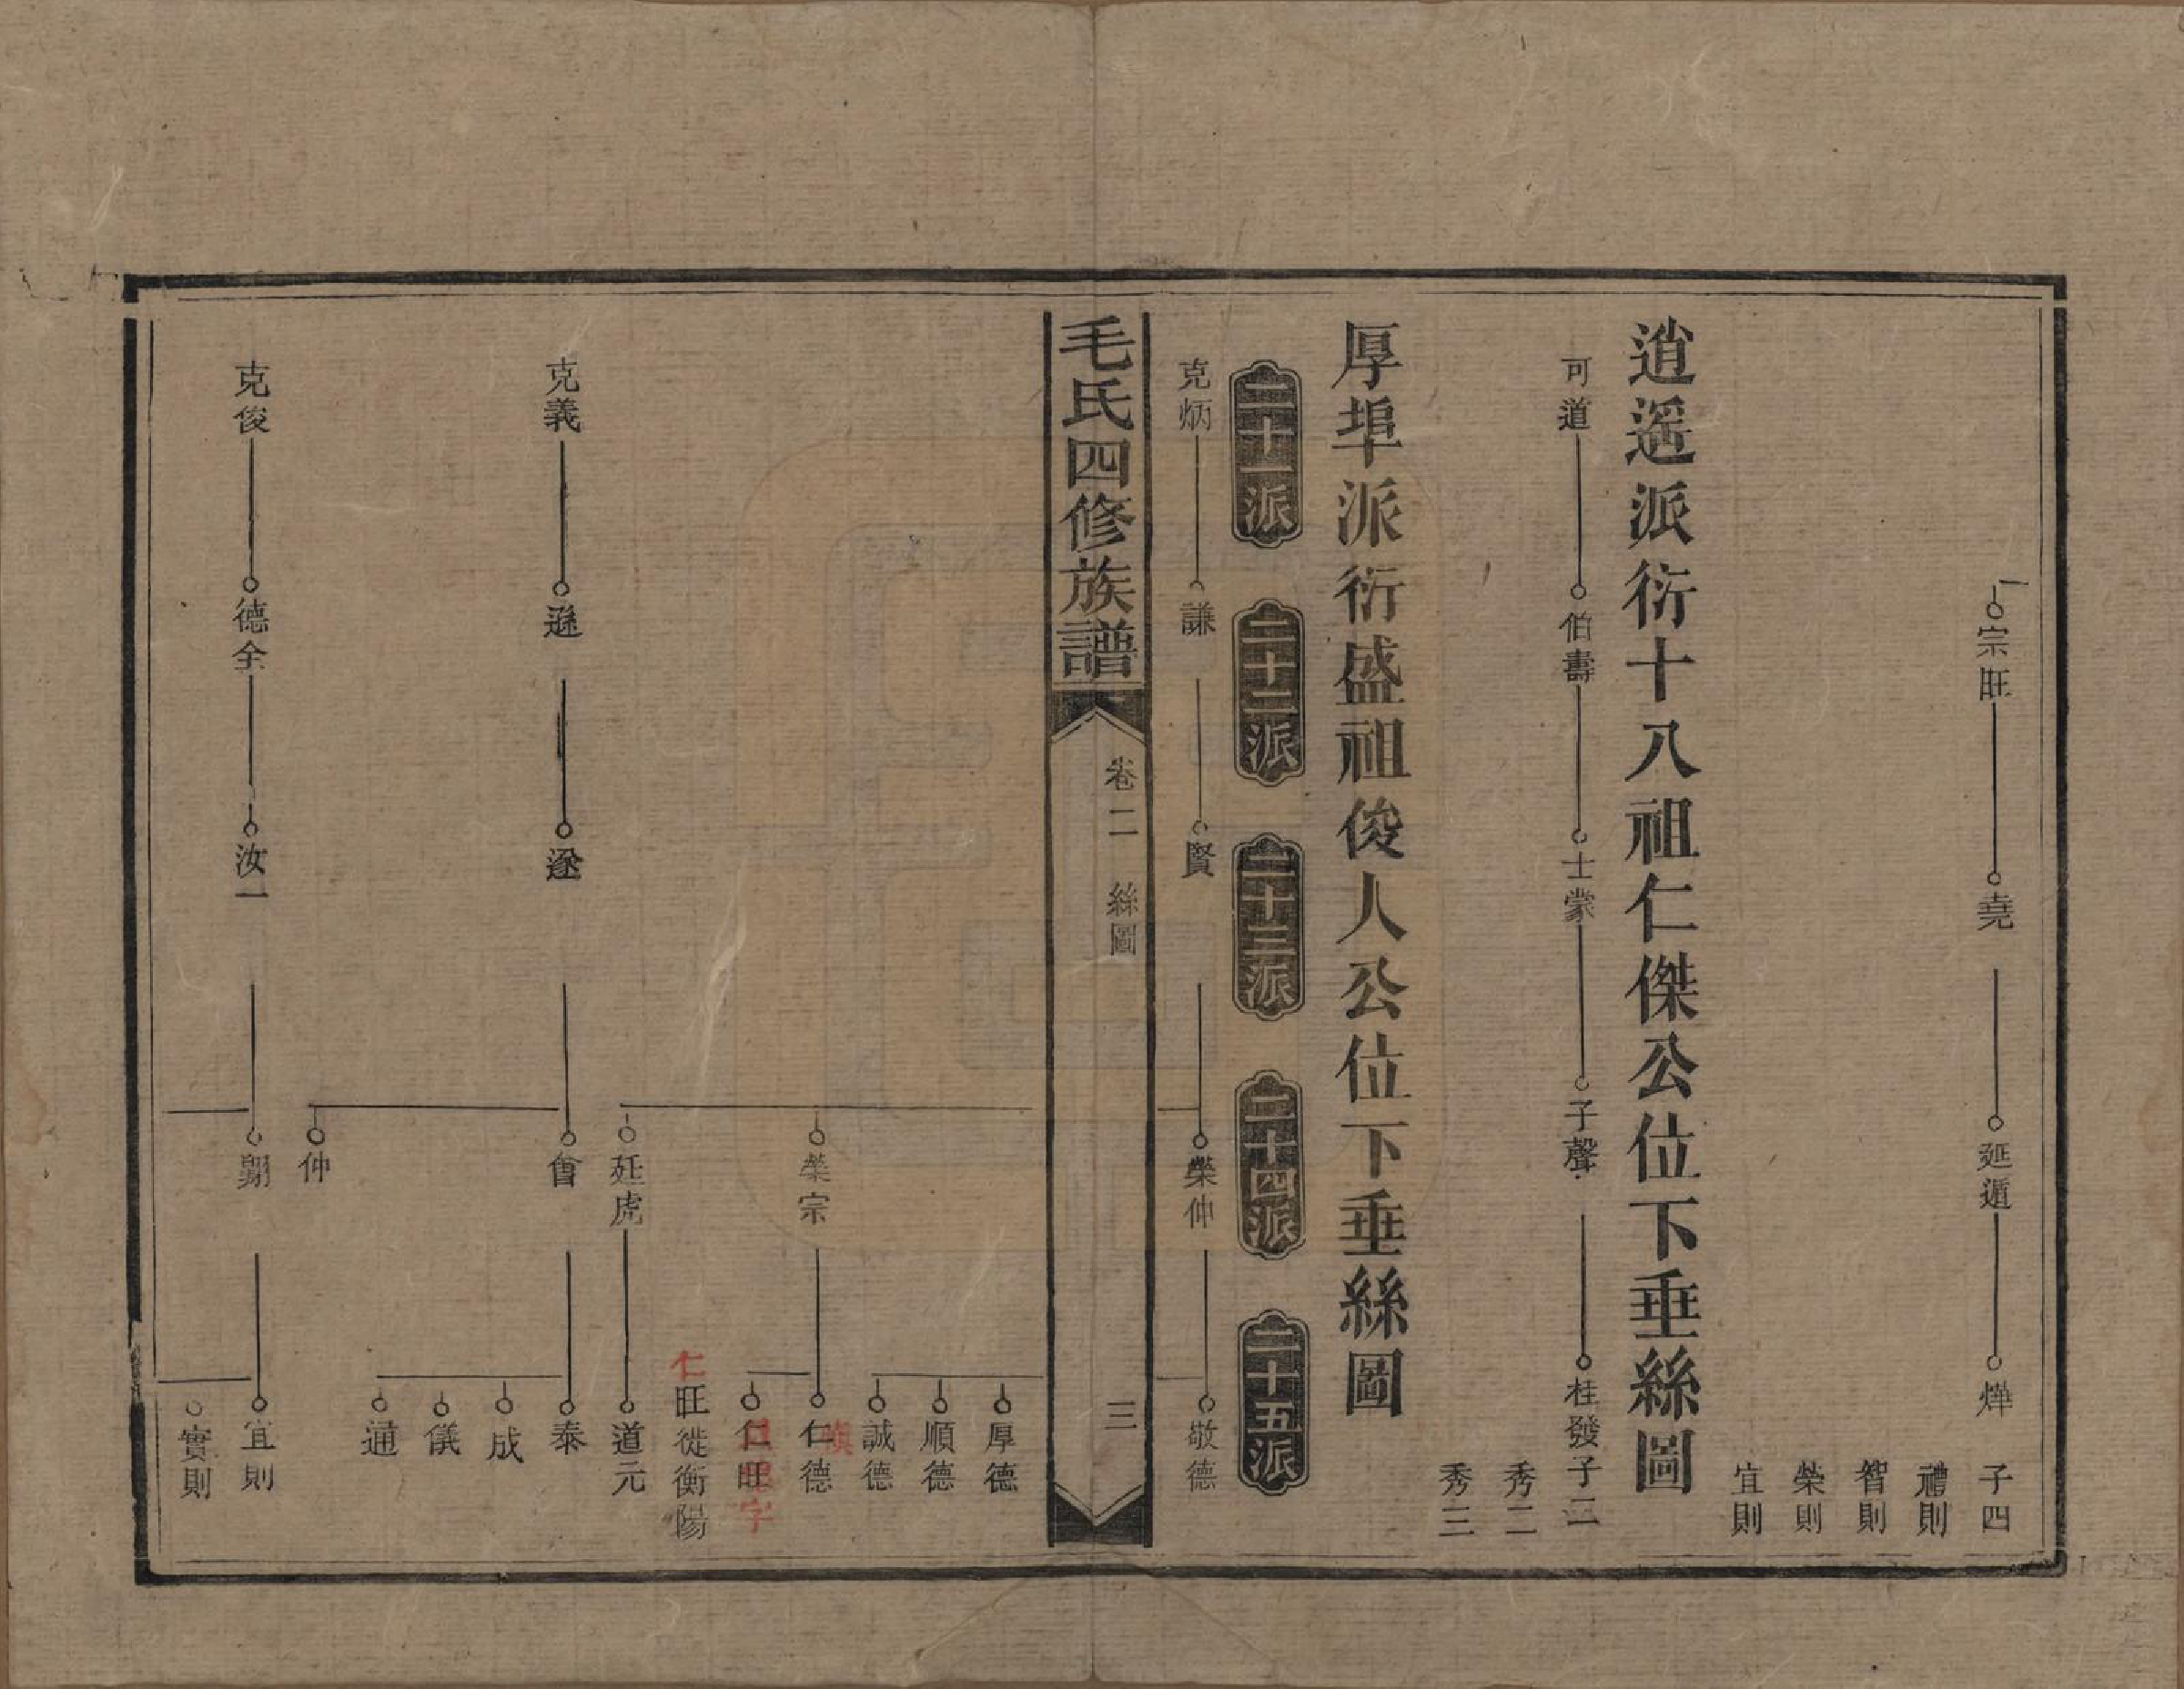 宗旺 堯 延遁 燁 子四
禮則
智則
榮則
宜則
逍遥派衍十八祖仁傑公位下垂絲圖
可道 伯壽 士蒙 子聲 桂發 子二
秀二
秀三
厚埠派衍盛祖俊人公位下垂絲圖
二十一派 二十二派 二十三派 二十四派 二十五派
克炳 謙 賢 榮仲 敬德
毛氏四修族譜 卷二 絲圖 三
厚德
順德
誠德
榮宗 仁德
仁旺
字
仁旺徙衡陽
廷虎 道元
克義 遜 會 泰
成
儀
仲 通
克俊 德全 汝一 翺 宜則
實則